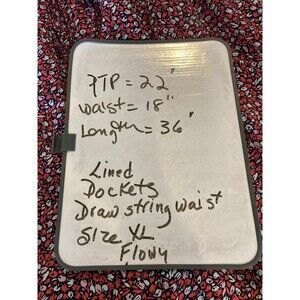 PTP = 22"
Waist = 18"
Length = 36"
Lined
Pockets
Draw string waist
Size XL
Flowy